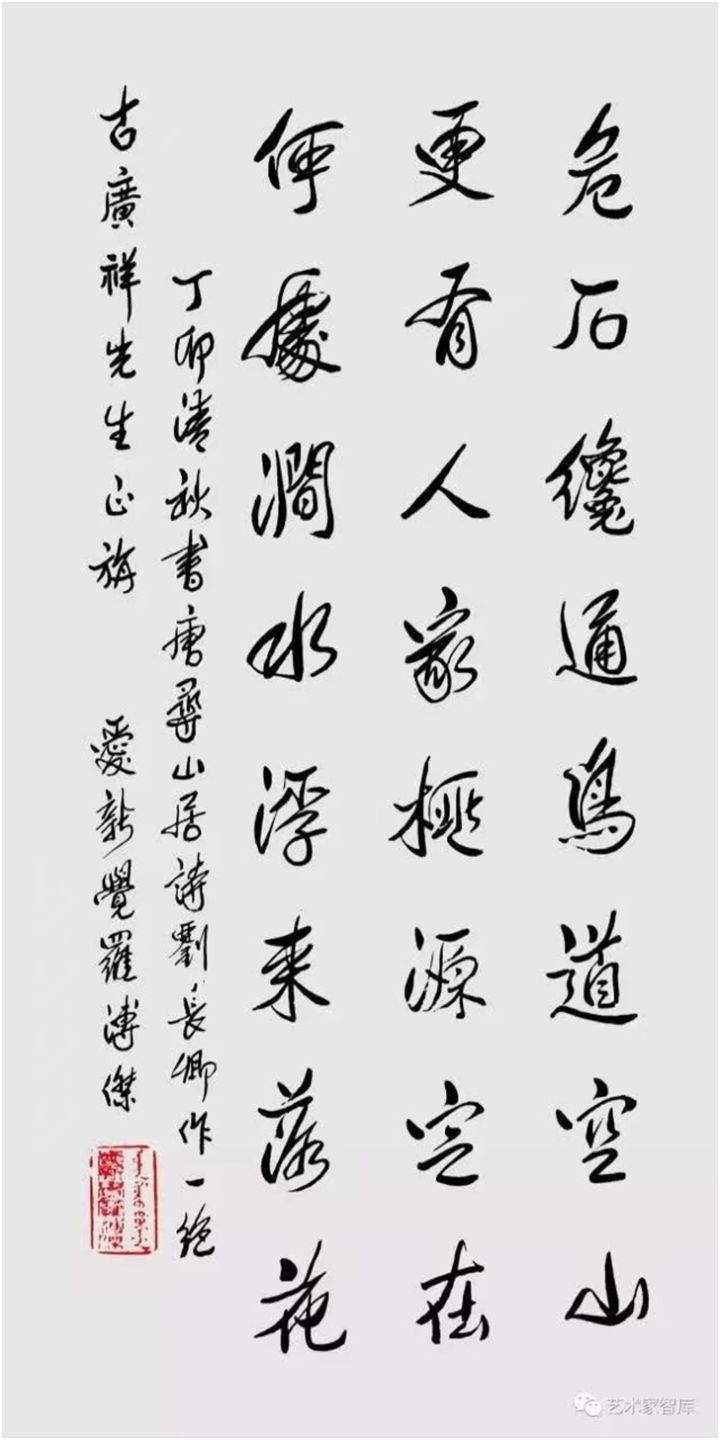 危石纔通鳥道空山
更有人家桃源定在
何處澗水浮来落花
丁卯清秋書唐尋山居詩劉長卿作一絶
古廣祥先生正旃 愛新覺羅溥傑
艺术家智库